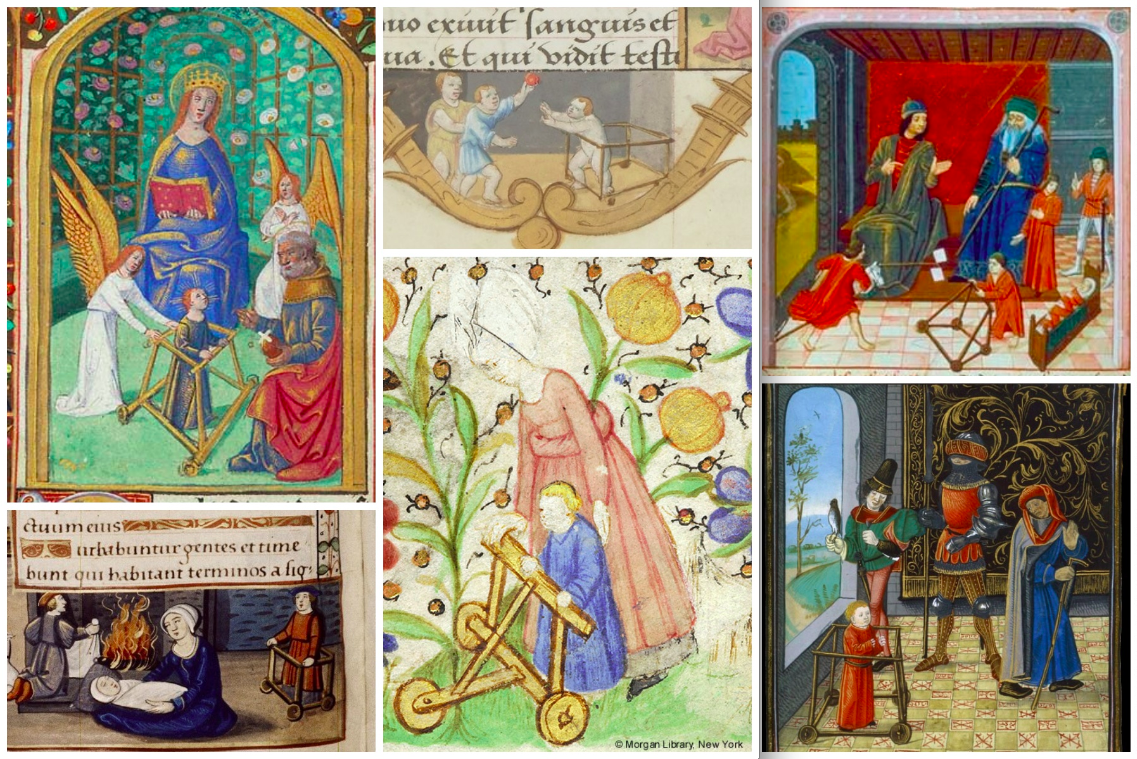 nuo exiuit sanguis et
ua. Et qui vidit testi
ctuum eius
urbabuntur gentes et time
bunt qui habitant terminos a sig
© Morgan Library, New York